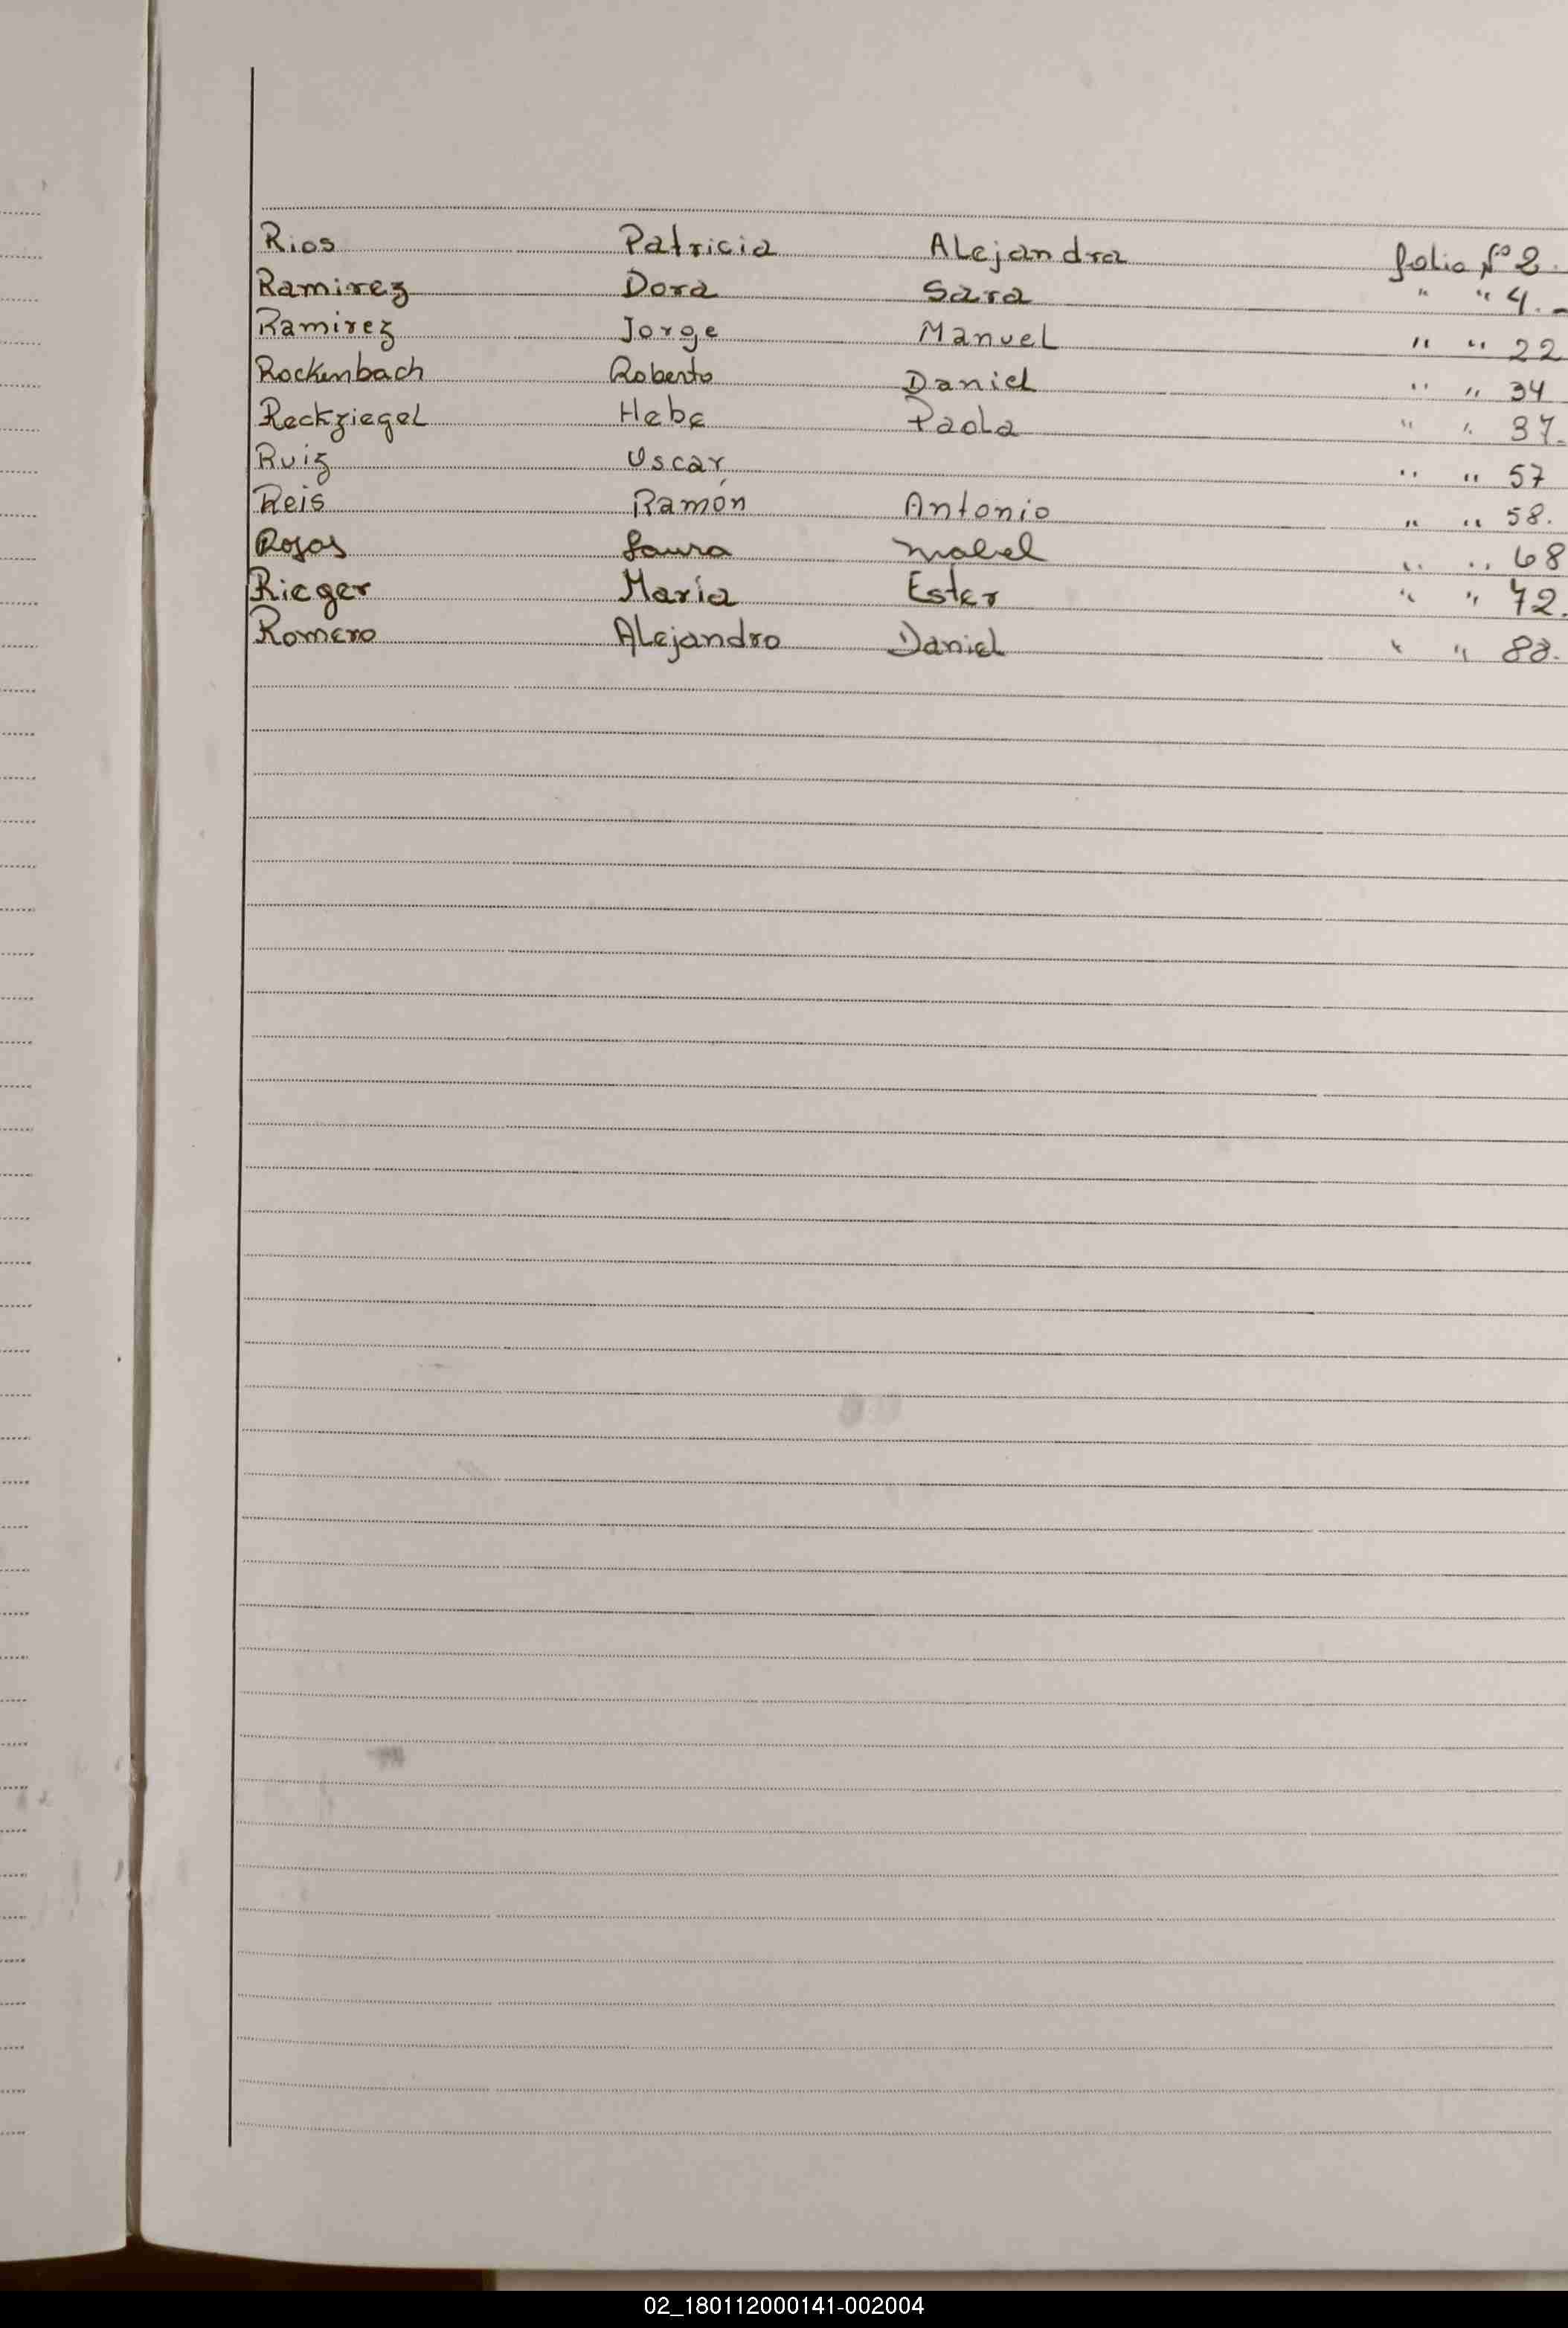 Rios Patricia Alejandra folio Nº 2.
Ramirez Dora Sara " " 4.-
Ramirez Jorge Manuel " " 22
Rockenbach Roberto Daniel " " 34
Reckziegel Hebe Paola " " 37.
Ruiz Oscar " " 57
Reis Ramón Antonio " " 58.
Rojas Laura Mabel " " 68
Rieger María Ester " " 72.
Romero Alejandro Daniel " "
02_180112000141-002004